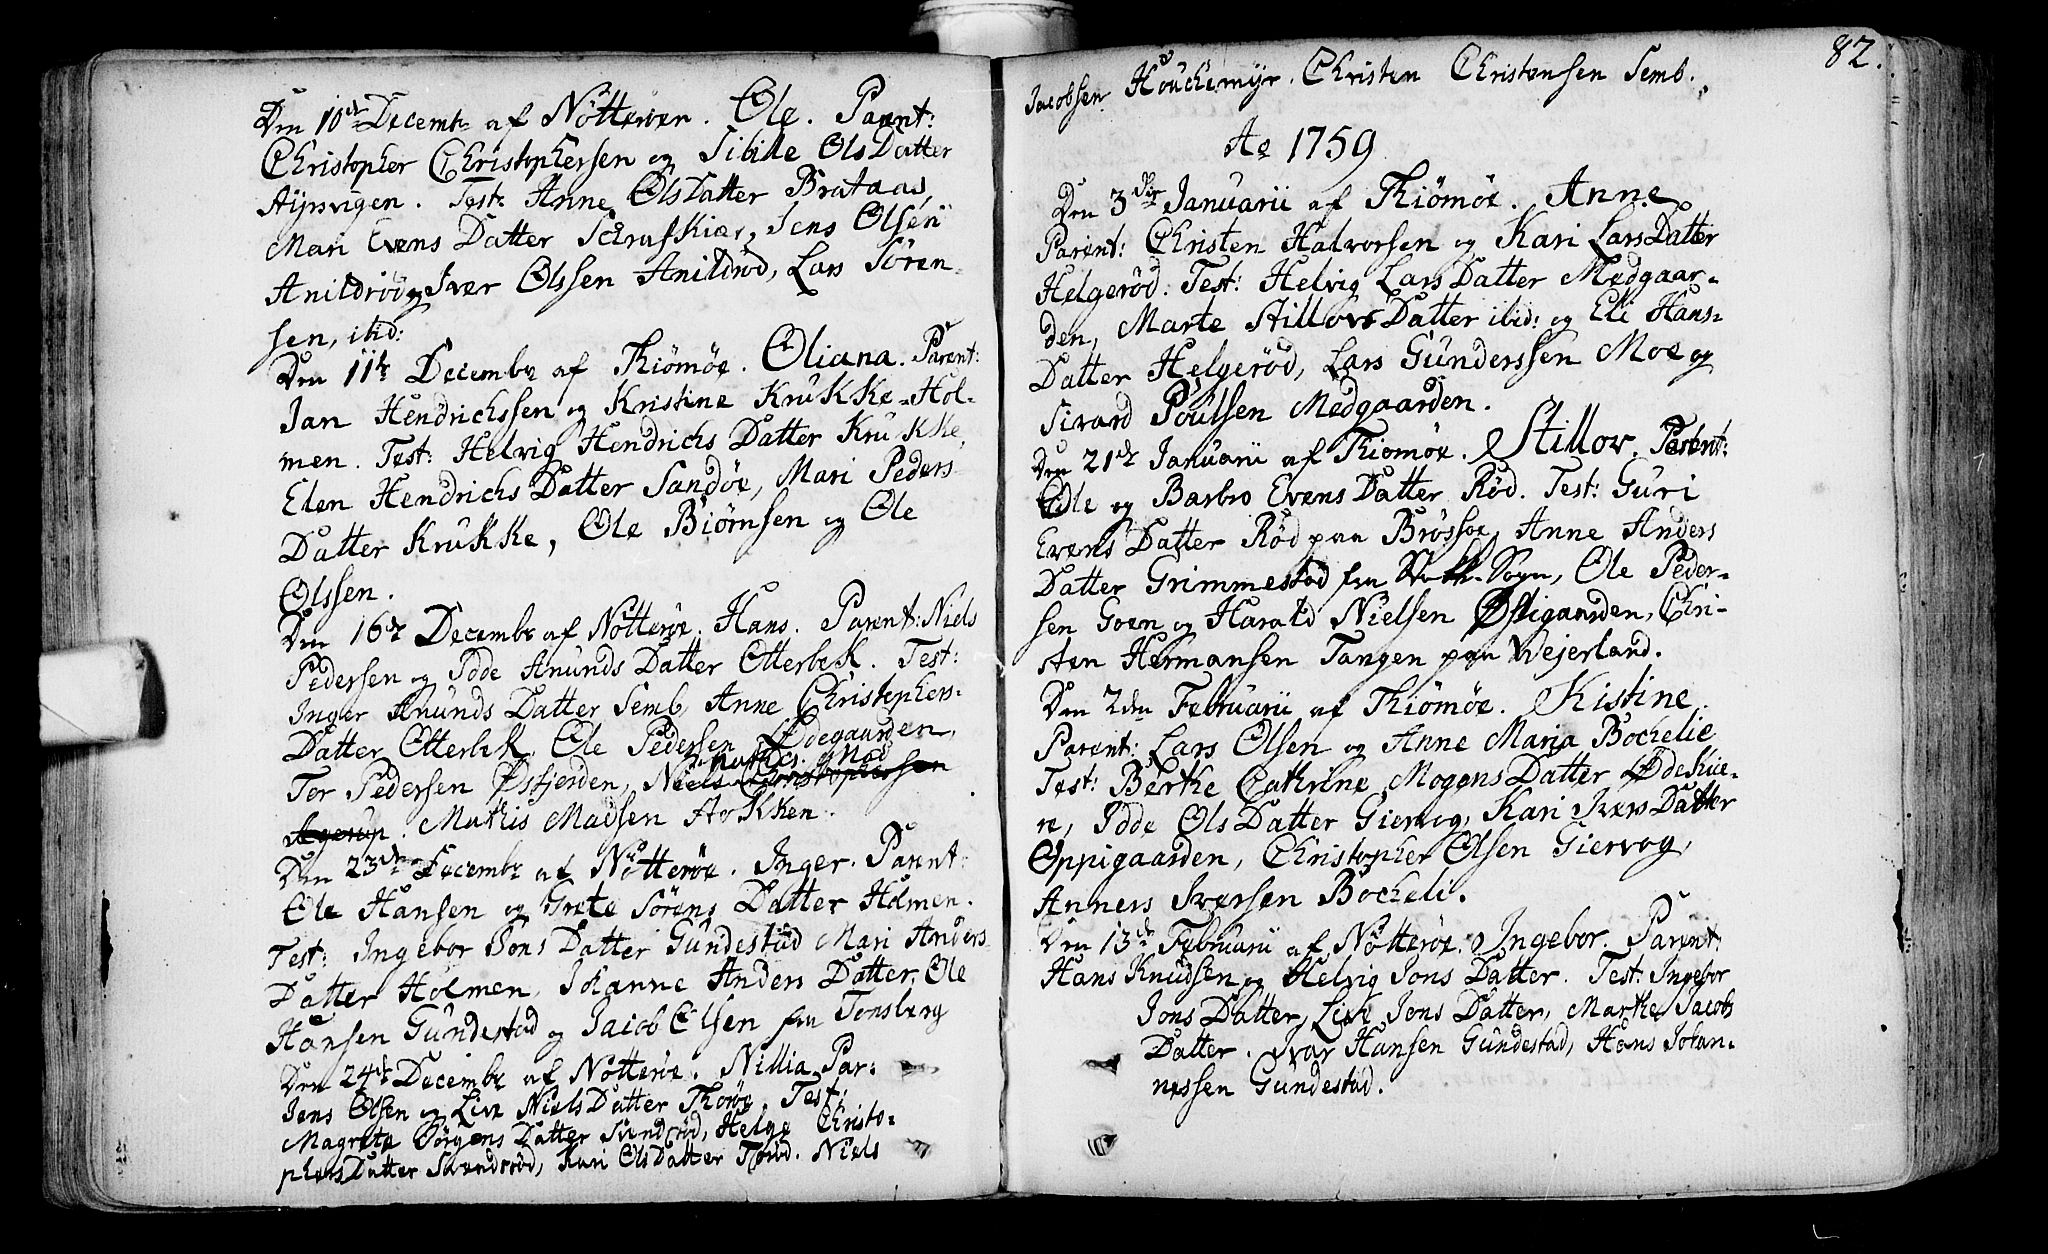 Den 10de Decembr af Nötteröen. Ole. Parent:
Christopher Christophersen og Sibille OlsDatter
Test: Anne OlsDatter Brataas,
Mari Evens Datter Jens Olsen
Anildröd og Iver Olssen Anildröd, Lars Sören-
sen, ibid:
Den 11te Decembr af Tiömöe. Oliana. Parent:
Jan Hendrichssen og Kristine Krukke-Hol-
men. Test: Helvig Hendrichs Datter Krukke,
Elen Hendrichs Datter Sandöe, Mari Peders
Datter Krukke, Ole Biörnsen og Ole
Olssen.
Den 16de Decembr af Nötteröe. Hans. Parent: Niels
Pedersen og Idde Anunds Datter Otterbek. Test:
Inger Anunds Datter Semb, Anne Christophers-
Datter Otterbek, Ole Pedersen Ødegaarden,
Tor Pedersen Østjorden, Niels Christophersen
Agerup. Mathis Madsen
Den 23de Decembr af Nötteröe. Inger. Parent:
Ole Hansen og Grete Sörens Datter Holmen.
Test: Ingebor Jons Datter Gundestad Mari Anders
Datter Holmen, Johanne Anders Datter, Ole
Hansen Gundestad og Jacob Elsen fra Tonsberg
Den 24de Decembr af Nötteröe. Nillia Par:
Jens Olsen og Live NielsDatter Thoröe. Test:
Magrete Görgens Datter Svendröd, Helge Christo-
phersDatter Svendsröd, Kari OlsDatter Toröd. Niels
82.
Jacobsen Houchemyr. Christen Christensen Semb.
Ao 1759
Den 3die Januarii af Tiömöe. Anne
Parent: Christen Halvorsen og Kari LarsDatter
Helgeröd. Test: Helvig LarsDatter Medgaar-
den, Marte Stillovs Datter ibid: og Eli Hans-
Datter Helgeröd, Lars Gunderssen Moe og
Sivard Poulsen Medgaarden.
Den 21de Januarii af Tiömöe. Stillov. Parent:
Ole og Barbro Evens Datter Röd. Test: Guri
Evens Datter Röd paa Brössöe, Anne Anders
Datter Grimmestad fra Sogn, Ole Peder-
sen Goen og Harald Nielsen Østigaarden, Chri-
sten Hermansen Tangen paa Wejerland.
Den 2den Februarii af Tiömöe. Kistine.
Parent: Lars Olsen og Anne Maria Bochelie
Test: Berthe Cathrine Mogens Datter Ødekiæ-
re, Idde OlsDatter Giervog, Kari Ivers Datter
Oppigaarden, Christopher Olsen Giervog,
Anners Iversen Bocheli.
Den 13de Februarii af Nötteröe. Ingebor. Parent:
Hans Knudsen og Helvig Jons Datter. Test: Ingebor
Jons Datter, Live Jons Datter, Marthe Jacobs
Datter. Ivar Hansen Gundestad, Hans Johan-
nessen Gundestad.